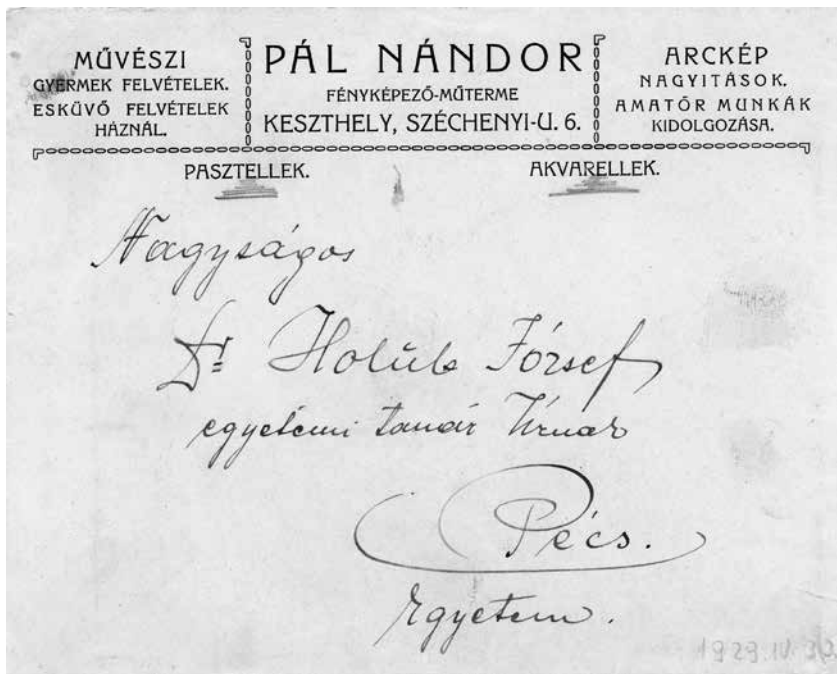 MŰVÉSZI
GYERMEK FELVÉTELEK.
ESKÜVŐ FELVÉTELEK
HÁZNÁL.
PÁL NÁNDOR
FÉNYKÉPEZŐ-MŰTERME
KESZTHELY, SZÉCHENYI-U. 6.
ARCKÉP
NAGYITÁSOK.
AMATŐR MUNKÁK
KIDOLGOZÁSA.
PASZTELLEK.
AKVARELLEK.
Nagyságos
Dr Holub József
egyetemi tanár Úrnak
Pécs.
Egyetem.
1929. IV.